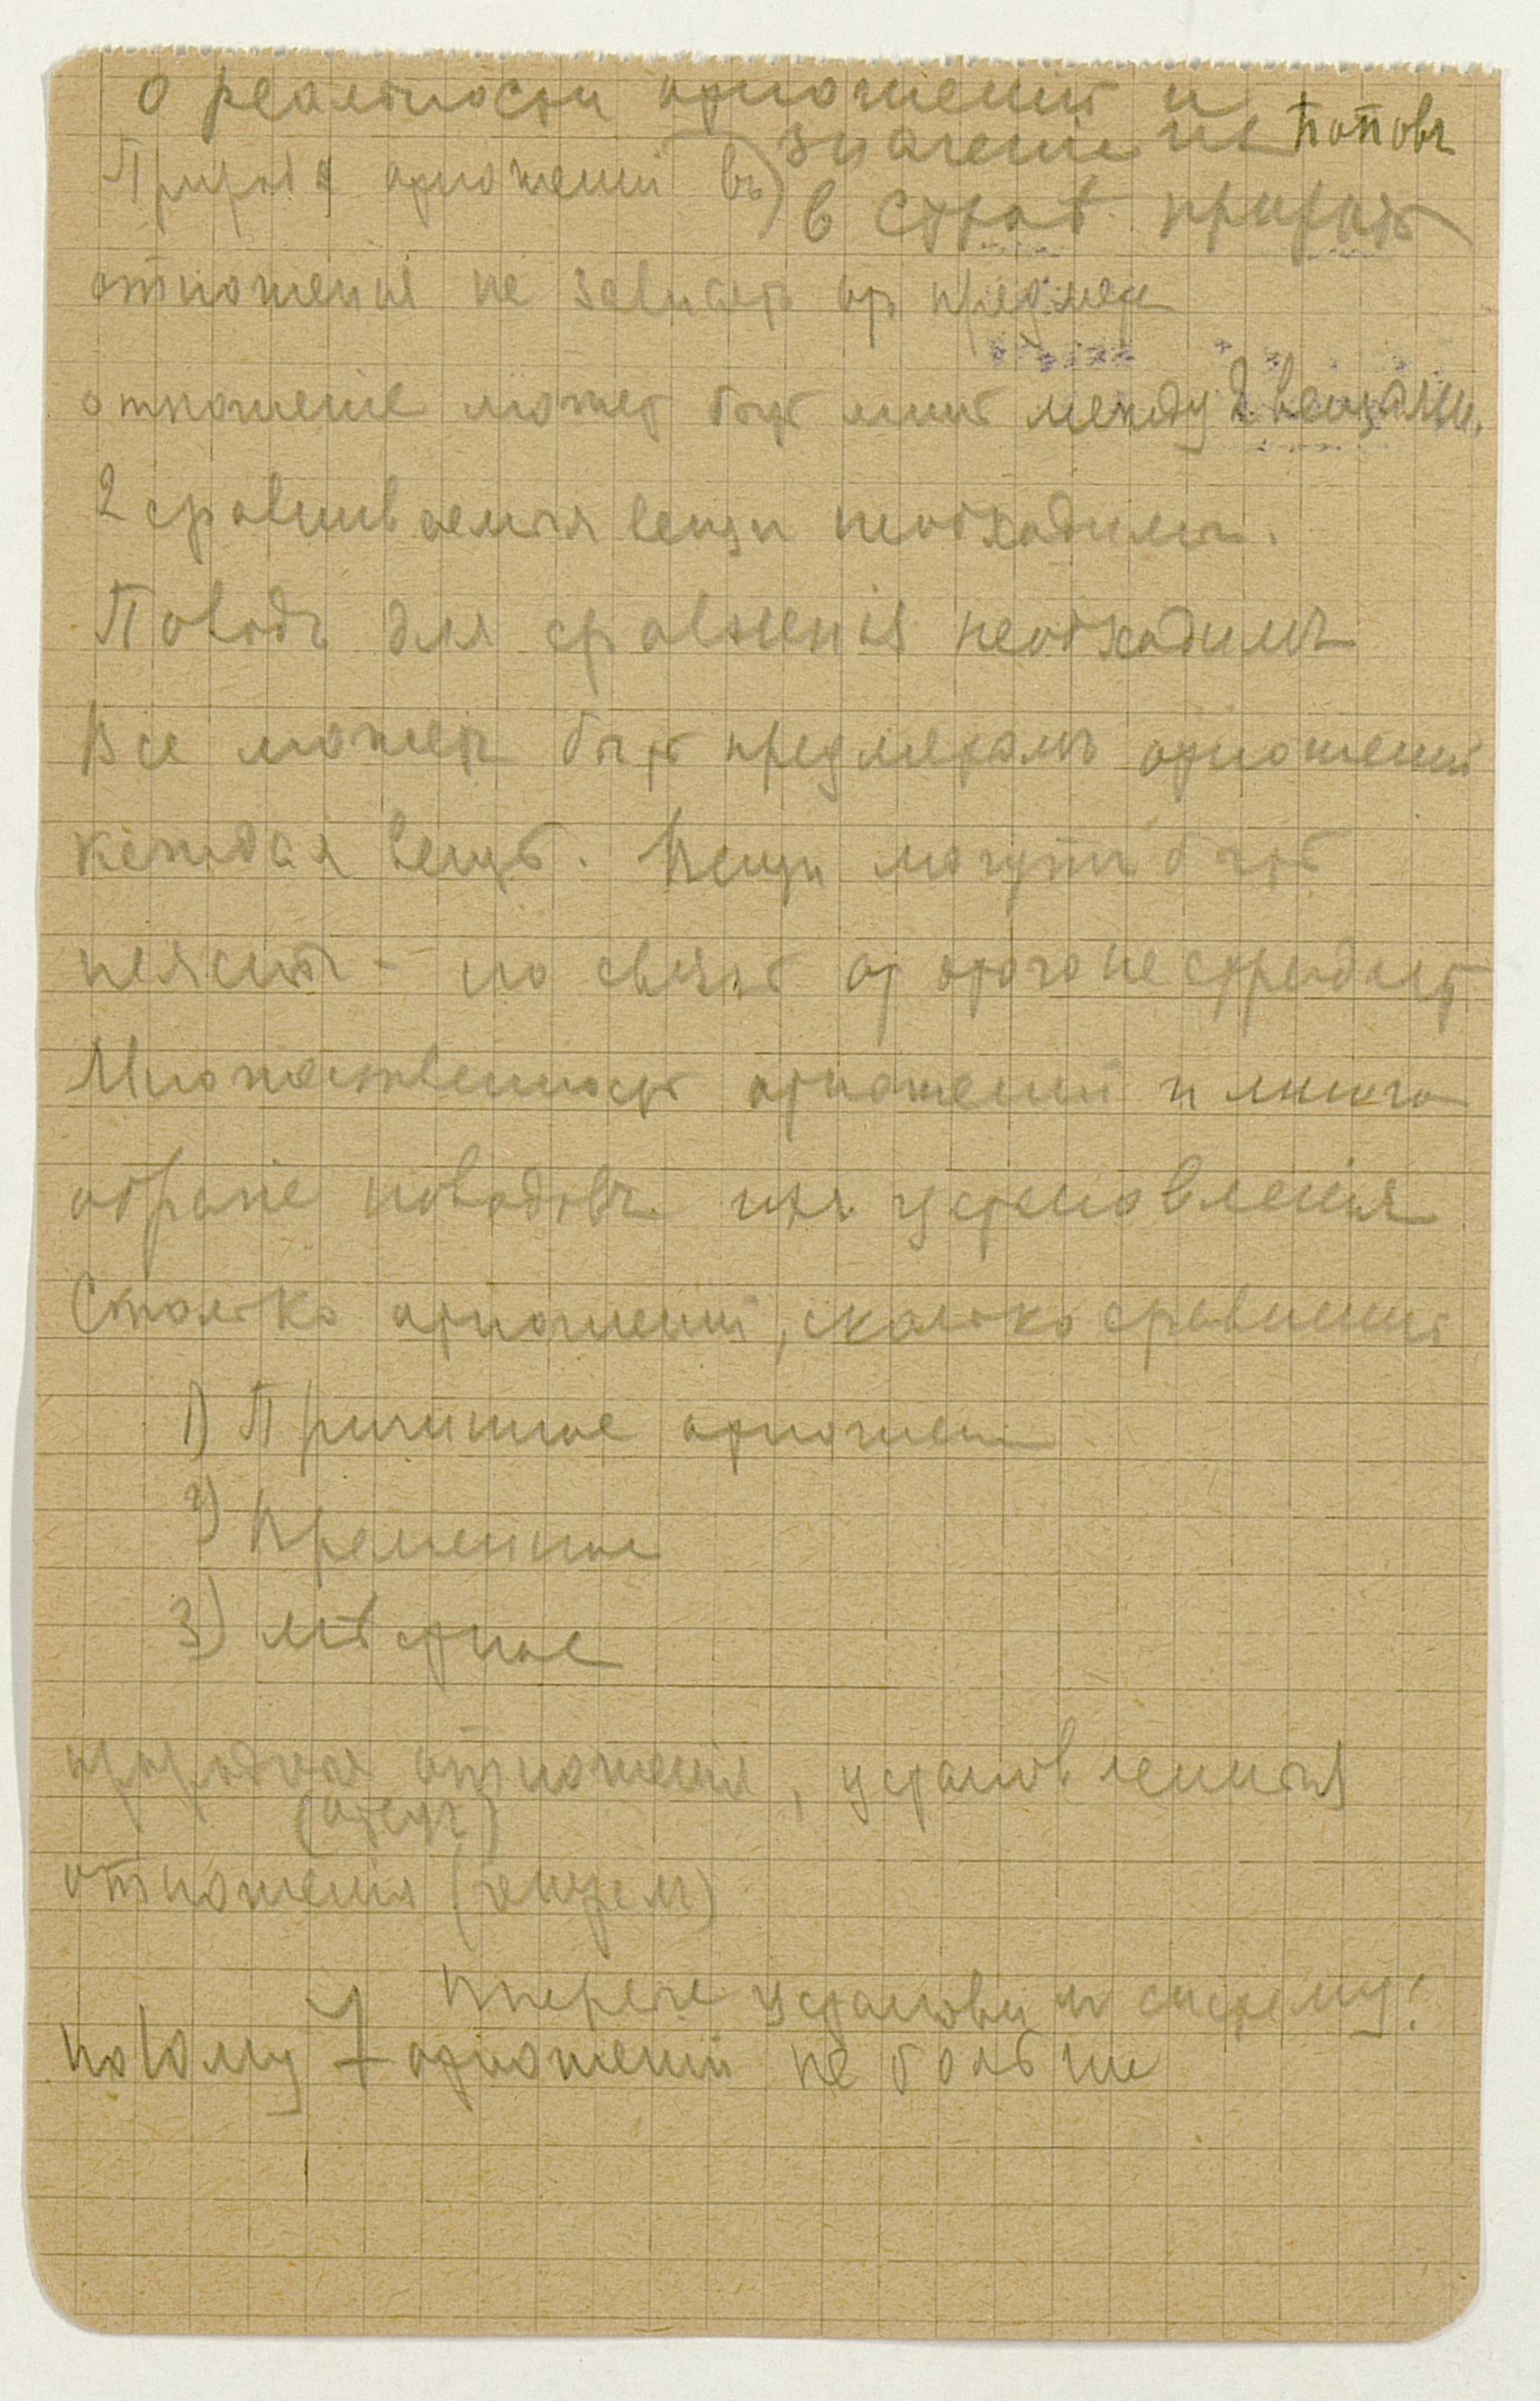 О реальности отношений и
значение их Поповъ
Природа отношений въ)
в строѣ природы
отношения не зависятъ от предмета
отношение может быть лишь между 2 вещами.
2 сравниваемыя вещи необходимы.
Поводъ для сравненія необходимъ
Все можетъ быть предметомъ отношений
каждая вещь. Вещи могутъ быть
неясны - но связь от этого не страдает
Множественность отношений и много
образіе поводовъ их установления
Столько отношений, сколько сравнений
1) Причинное отношен
2) Временное
3) мѣстное
отношения, установленныя
отношения
Впервые установим систему!
поному 7 отношений не больше